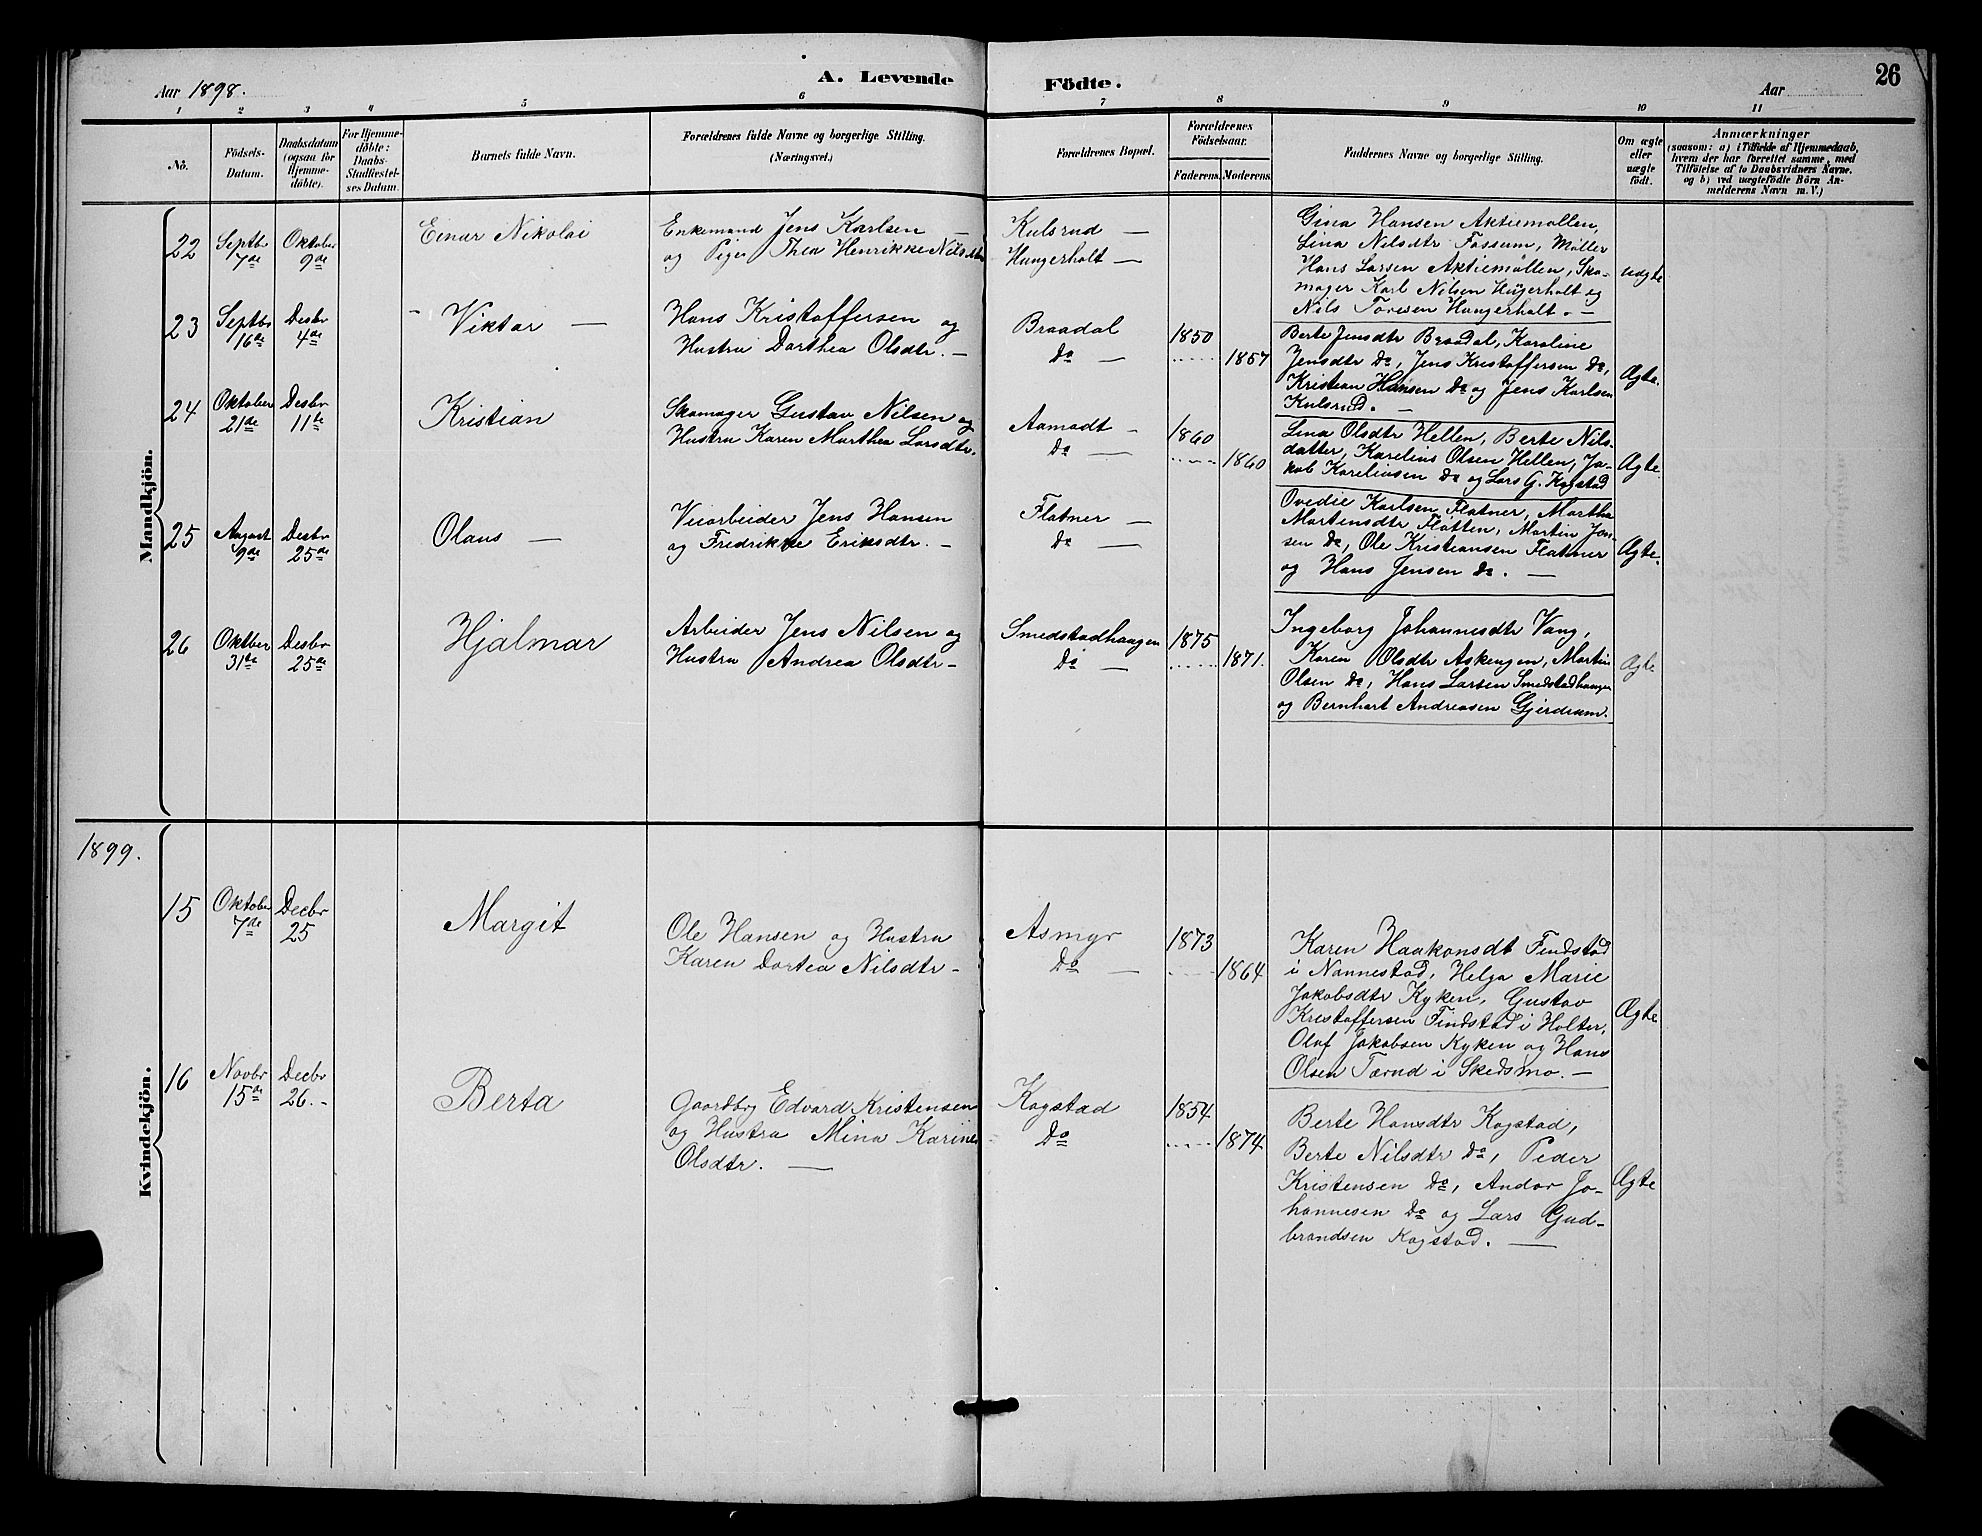 A. Levende Födte.
26
Aar 1898.
Aar
1 2 3 4 5 6 7 8 9 10 11
Nö.
Födsels-
Datum.
Daabsdatum
(ogsaa för
Hjemme-
döbte).
For Hjemme-
döbte:
Daabs-
Stadfæstel-
ses Datum.
Barnets fulde Navn.
Forældrenes fulde Navne og borgerlige Stilling.
(Næringsvei.)
Forældrenes Bopæl.
Forældrenes
Födselsaar.
Faderens. Moderens.
Faddernes Navne og borgerlig Stilling.
Om ægte
eller
uægte
födt.
Anmærkninger
(saasom: a) i Tilfælde af Hjemmedaab,
hvem der har forrettet samme, med
Tilföielse af to Daabsvidners Navne.
og b) ved uægtefödte Börn An-
melderens Navn m. V.)
Mandkjön.
22
Septbr
7de
Oktober
9de
Einar Nikolai
Enkemand Jens Karlsen —
og Pige Thea Henrikke Nilsdtr
Kulsrud —
Hungerholt —
Gina Hansen Aktiemøllen,
Lina Nilsdtr Fossum, Møller
Hans Larsen Aktiemøllen, Sko-
mager Karl Nilsen Hugerholt og
Nils Toresen Hungerholt. —
uægte
23
Septbr
16de
Desbr
4de
Viktor —
Hans Kristoffersen og
Hustru Dorthea Olsdtr. —
Braadal
Do —
1850
1857
Berte Jensdtr Braadal, Karoline
Jensdtr Do, Jens Kristoffersen Do,
Kristian Hansen Do og Jens Karlsen
Kulsrud. —
Ægte.
24
Oktober
21de
Desbr
11te
Kristian
Skomager Gustav Nilsen og
Hustru Karen Marthea Larsdtr.
Aamodt —
Do —
1860
1860
Lina Olsdtr Hellen, Berte Nils-
datter, Karelius Olsen Hellen, Ja-
kob Kareliusen Do og Lars G. Kogstad
Ægte
25
August
9de
Desbr
25de
Olaus —
Veiarbeider Jens Hansen
og Fredrikke Eriksdtr. —
Flatner —
Do —
Ovedie Karlsen Flatner, Martha
Martensdtr Fløtten, Martin Jen-
sen Do, Ole Kristiansen Flatner
og Hans Jensen Do. —
Ægte.
26
Oktber
31te
Desbr
25de
Hjalmar
Arbeider Jens Nilsen og
Hustru Andrea Olsdtr —
Smedstadhaugen
Do —
1875
1871.
Ingeborg Johannesdtr Vang,
Karen Olsdtr Askengen, Martin
Olsen Do, Hans Larsen Smedstadhaugen
og Bernhart Andreasen Gjerdrum.
Ægte
1899.
Kvindekjön.
15
Oktober
7de
Decbr
25
Margit
Ole Hansen og Hustru
Karen Dortea Nilsdtr —
Asmyr
Do —
1873
1864
Karen Haakonsdt Findstad
i Nannestad, Helga Marie
Jakobsdtr Kyken, Gustav
Kristoffersen Findstad i Holter,
Olaf Jakobsen Kyken og Hans
Olsen Tærud i Skedsmo. —
Ægte
16
Novbr
15de
Decbr
26. —
Berta
Gaardbrg Edvard Kristensen
og Hustru Mina Karine
Olsdtr. —
Kogstad
Do
1854
1874
Berte Hansdtr Kogstad,
Berte Nilsdtr Do, Peder
Kristensen Do, Andor Jo-
hannesen Do og Lars Gud-
brandsen Kogstad. —
Ægte